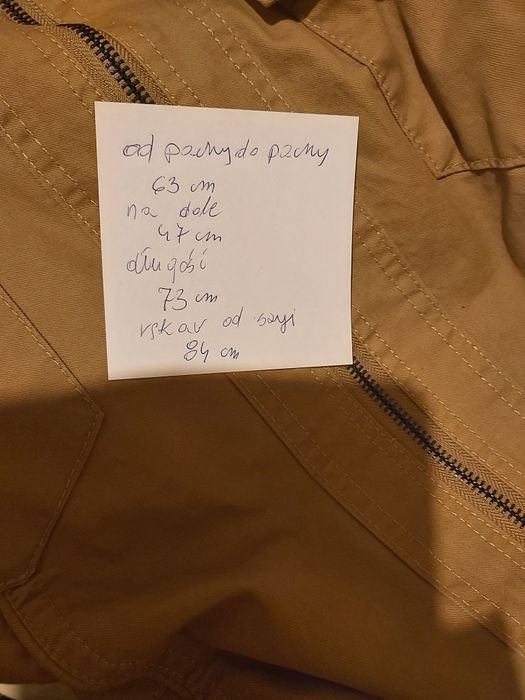 od pachy do pachy
63 cm
na dole
47 cm
długość
73 cm
rękaw od szyi
84 cm